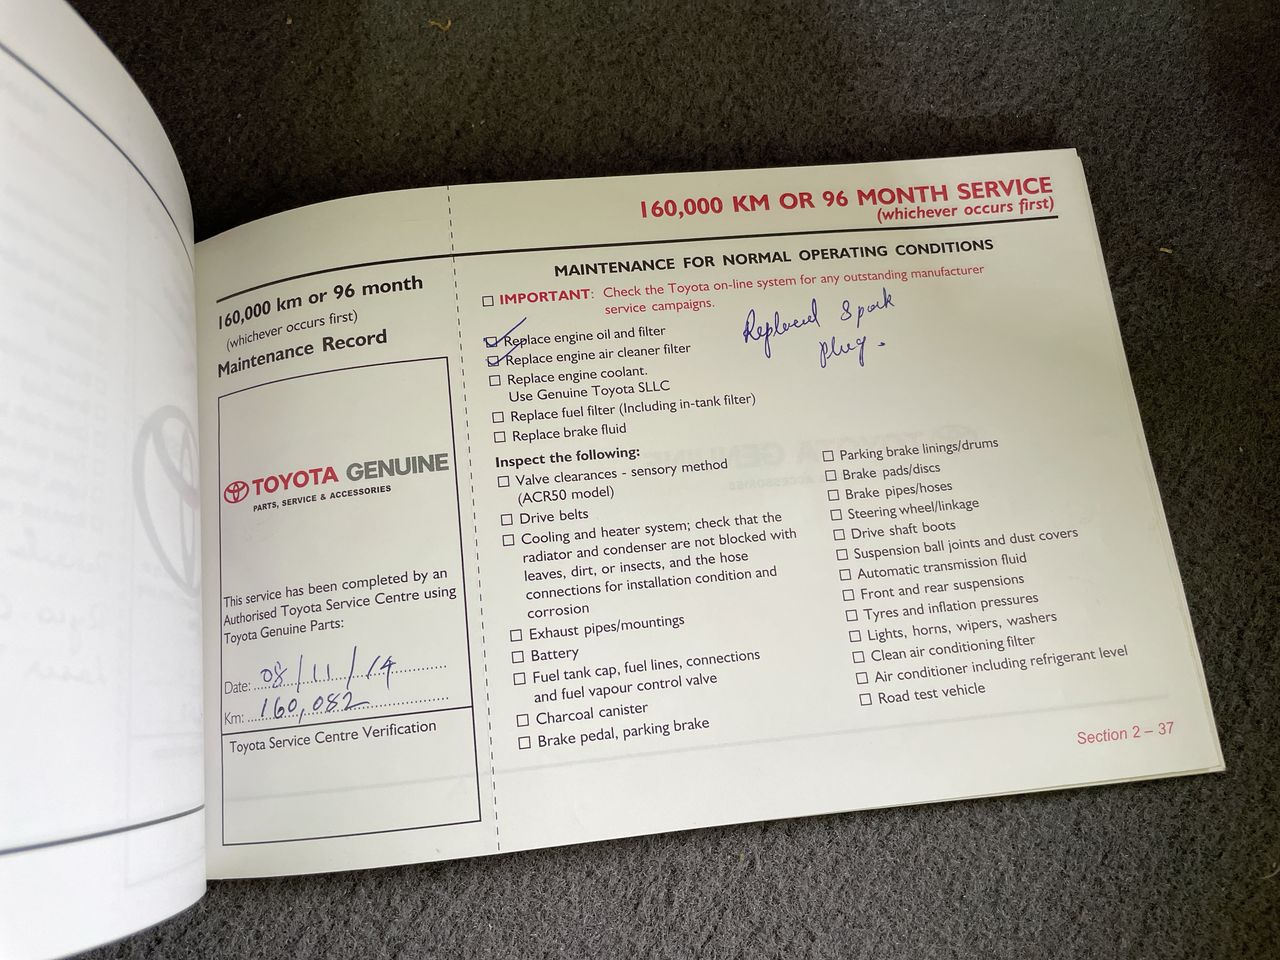 160,000 km or 96 month
(whichever occurs first)
Maintenance Record
TOYOTA GENUINE
PARTS, SERVICE & ACCESSORIES
This service has been completed by an
Authorised Toyota Service Centre using
Toyota Genuine Parts:
Date: 08/11/14
Km: 160,082
Toyota Service Centre Verification
160,000 KM OR 96 MONTH SERVICE
(whichever occurs first)
MAINTENANCE FOR NORMAL OPERATING CONDITIONS
IMPORTANT: Check the Toyota on-line system for any outstanding manufacturer
service campaigns.
Replace engine oil and filter
Replace engine air cleaner filter
Replace engine coolant.
Use Genuine Toyota SLLC
Replace fuel filter (Including in-tank filter)
Replace brake fluid
Replaced Spark
plug.
Inspect the following:
Valve clearances - sensory method
(ACR50 model)
Drive belts
Cooling and heater system; check that the
radiator and condenser are not blocked with
leaves, dirt, or insects, and the hose
connections for installation condition and
corrosion
Exhaust pipes/mountings
Battery
Fuel tank cap, fuel lines, connections
and fuel vapour control valve
Charcoal canister
Brake pedal, parking brake
Parking brake linings/drums
Brake pads/discs
Brake pipes/hoses
Steering wheel/linkage
Drive shaft boots
Suspension ball joints and dust covers
Automatic transmission fluid
Front and rear suspensions
Tyres and inflation pressures
Lights, horns, wipers, washers
Clean air conditioning filter
Air conditioner including refrigerant level
Road test vehicle
Section 2 – 37